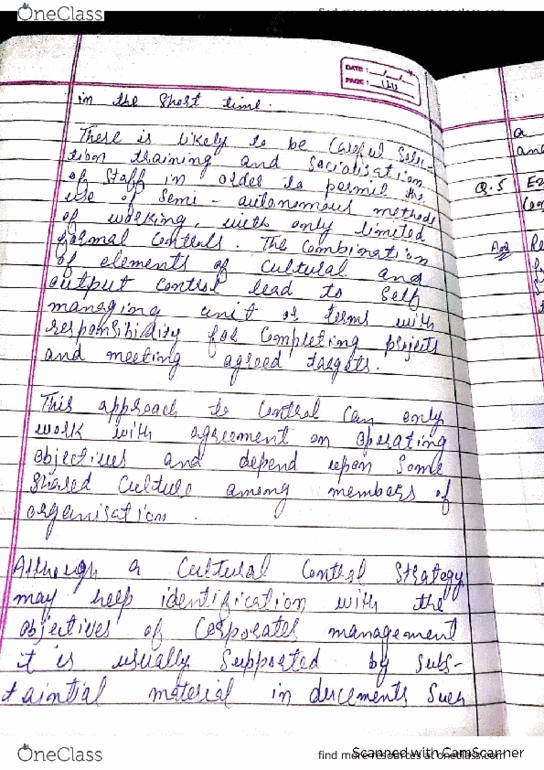 OneClass
find more resources at oneclass.com
DATE :
PAGE :
in the short time.
There is likely to be careful selec-
tion training and socialisation
of staff in order to permit the
use of semi-autonomous methods
of working, with only limited
formal controls. The combination
of elements of cultural and
output control lead to self
managing unit or terms with
responsibility for completing projects
and meeting agreed targets.
This approach to control can only
work with agreement on operating
objectives and depend upon some
shared culture among members of
organisation.
Although a cultural control strategy
may help identification with the
objectives of corporates management
it is usually supported by subs-
taintial material in ducements such
a
and
Q.5
Ans
OneClass
find more resources at oneclass.com
Scanned with CamScanner